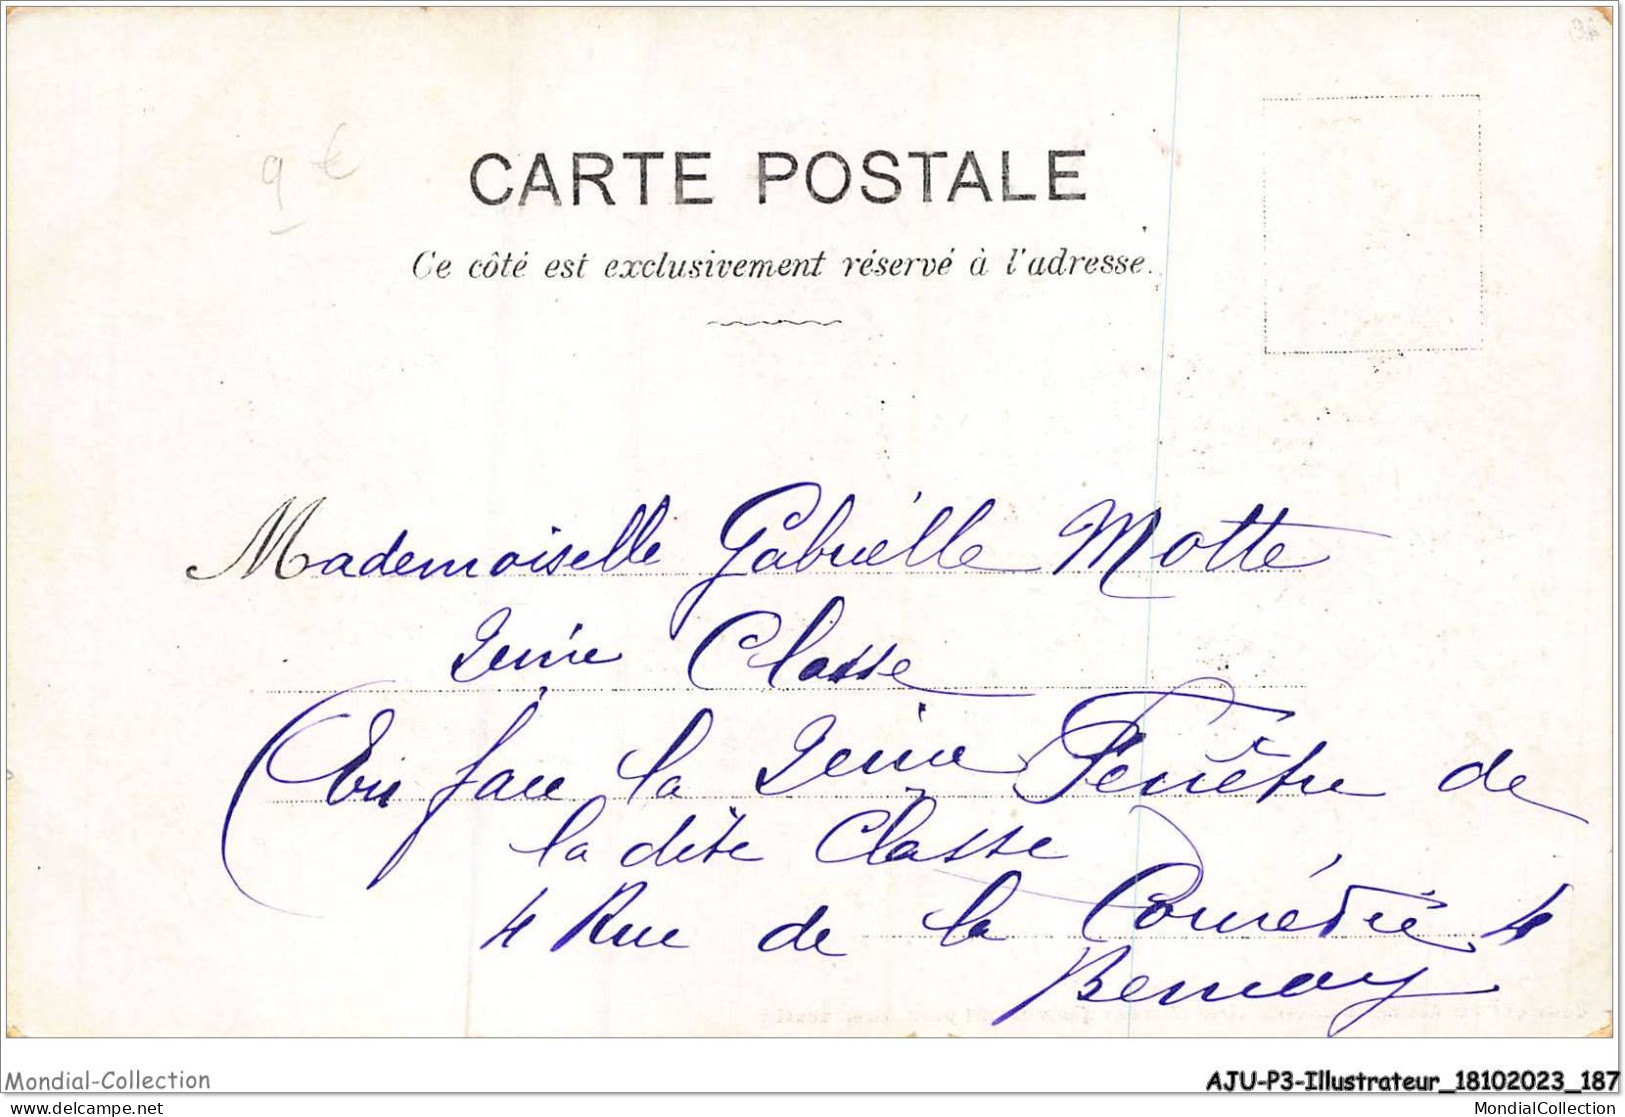 9 €
CARTE POSTALE
Ce côté est exclusivement réservé à l'adresse.
Mademoiselle Gabrielle Motte
2eme Classe
(En face la 2eme Fenêtre de
la dite Classe)
4 Rue de la Comédie 4
Bernay
Mondial-Collection
AJU-P3-Illustrateur_18102023_187
www.delcampe.net
MondialCollection